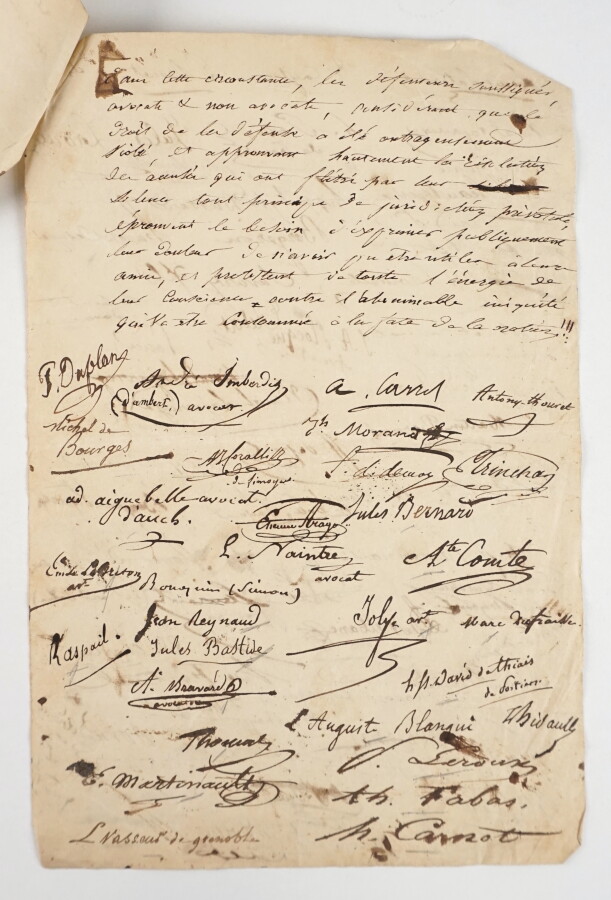 Dans cette circonstance, les défenseurs soussignés,
avocats & non avocats, considérant que le
Droit de la défense a été outrageusement
violé, et approuvant hautement la résolution
des accusés qui ont flétri par leur
silence tout principe de juridiction prévotale,
éprouvent le besoin d'exprimer publiquement
leur douleur de n'avoir pu être utiles à leurs
amis, et protestent de toute l'énergie de
leur conscience contre l'abominable iniquité
qui va être consommée à la face de la nation !!!
F. Duplan
André Imberdis
(d'ambert) avocat
A. Carrel
Antony thouret
Michel de
Bourges
Jh Morand
de Limoges
Trinchan
ad. aiguebelle avocat
d'auch.
Etienne Arago
Jules Bernard
L. Naintre
avocat
Ate Comte
Emile Lebreton
avt
Bouquin (Simon)
Raspail.
Jean Reynaud
Jules Bastide
Joly avt
Marc Dufraisse.
A. Bravard
avocat
h st. David de thiais
de Poitiers
L Auguste Blanqui
Thibault
Thouret
P. Leroux
E. Martinault
th. Fabas.
L Vasseur de grenoble
h. Carnot